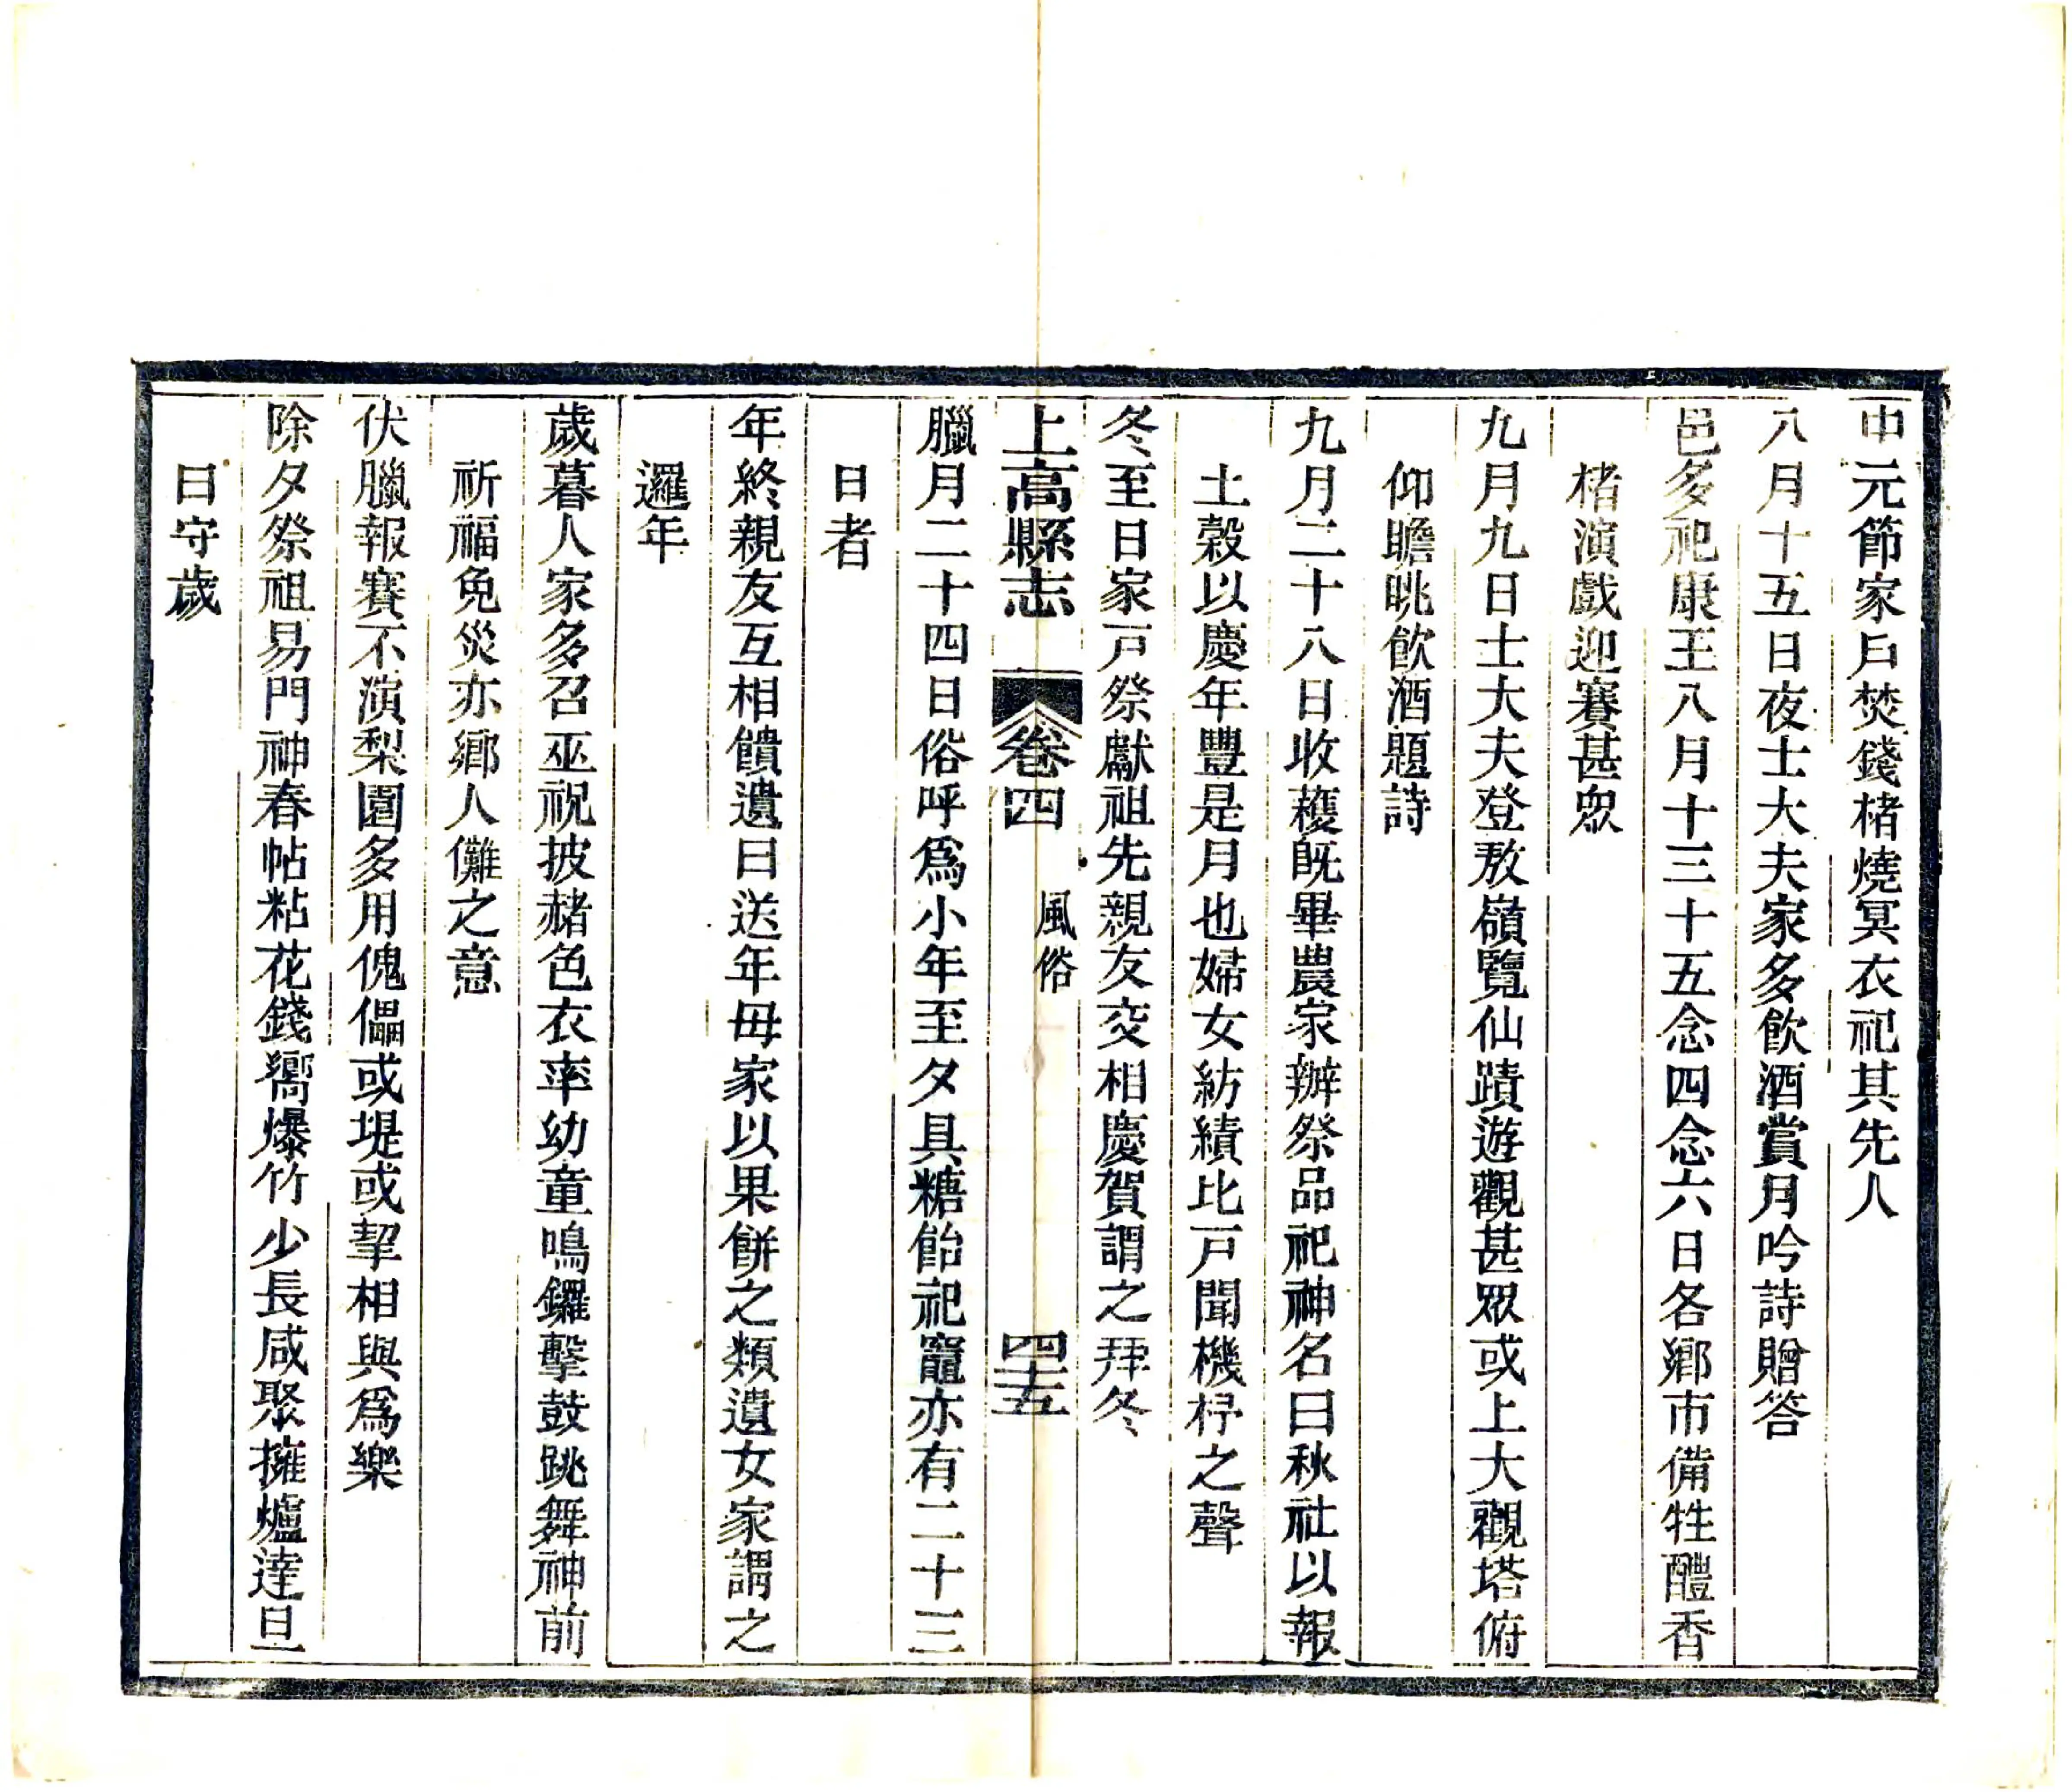 中元節家戶焚錢楮燒冥衣祀其先人
八月十五日夜士大夫家多飲酒賞月吟詩贈答
邑多祀康王八月十三十五念四念六日各鄉市備牲醴香
楮演戲迎賽甚眾
九月九日士大夫登敖嶺覽仙蹟遊觀甚眾或上大觀塔俯
仰瞻眺飲酒題詩
九月二十八日收穫旣畢農家辦祭品祀神名曰秋社以報
土穀以慶年豐是月也婦女紡績比戶聞機杼之聲
冬至日家戶祭獻祖先親友交相慶賀謂之拜冬
上高縣志 卷四 風俗 四十五
臘月二十四日俗呼爲小年至夕具糖飴祀竈亦有二十三
日者
年終親友互相饋遺曰送年母家以果餅之類遺女家謂之
邏年
歲暮人家多召巫祝披赭色衣率幼童鳴鑼擊鼓跳舞神前
祈福免災亦鄉人儺之意
伏臘報賽不演梨園多用傀儡或堤或挈相與爲樂
除夕祭祖易門神春帖粘花錢嚮爆竹少長咸聚擁爐達旦
曰守歲